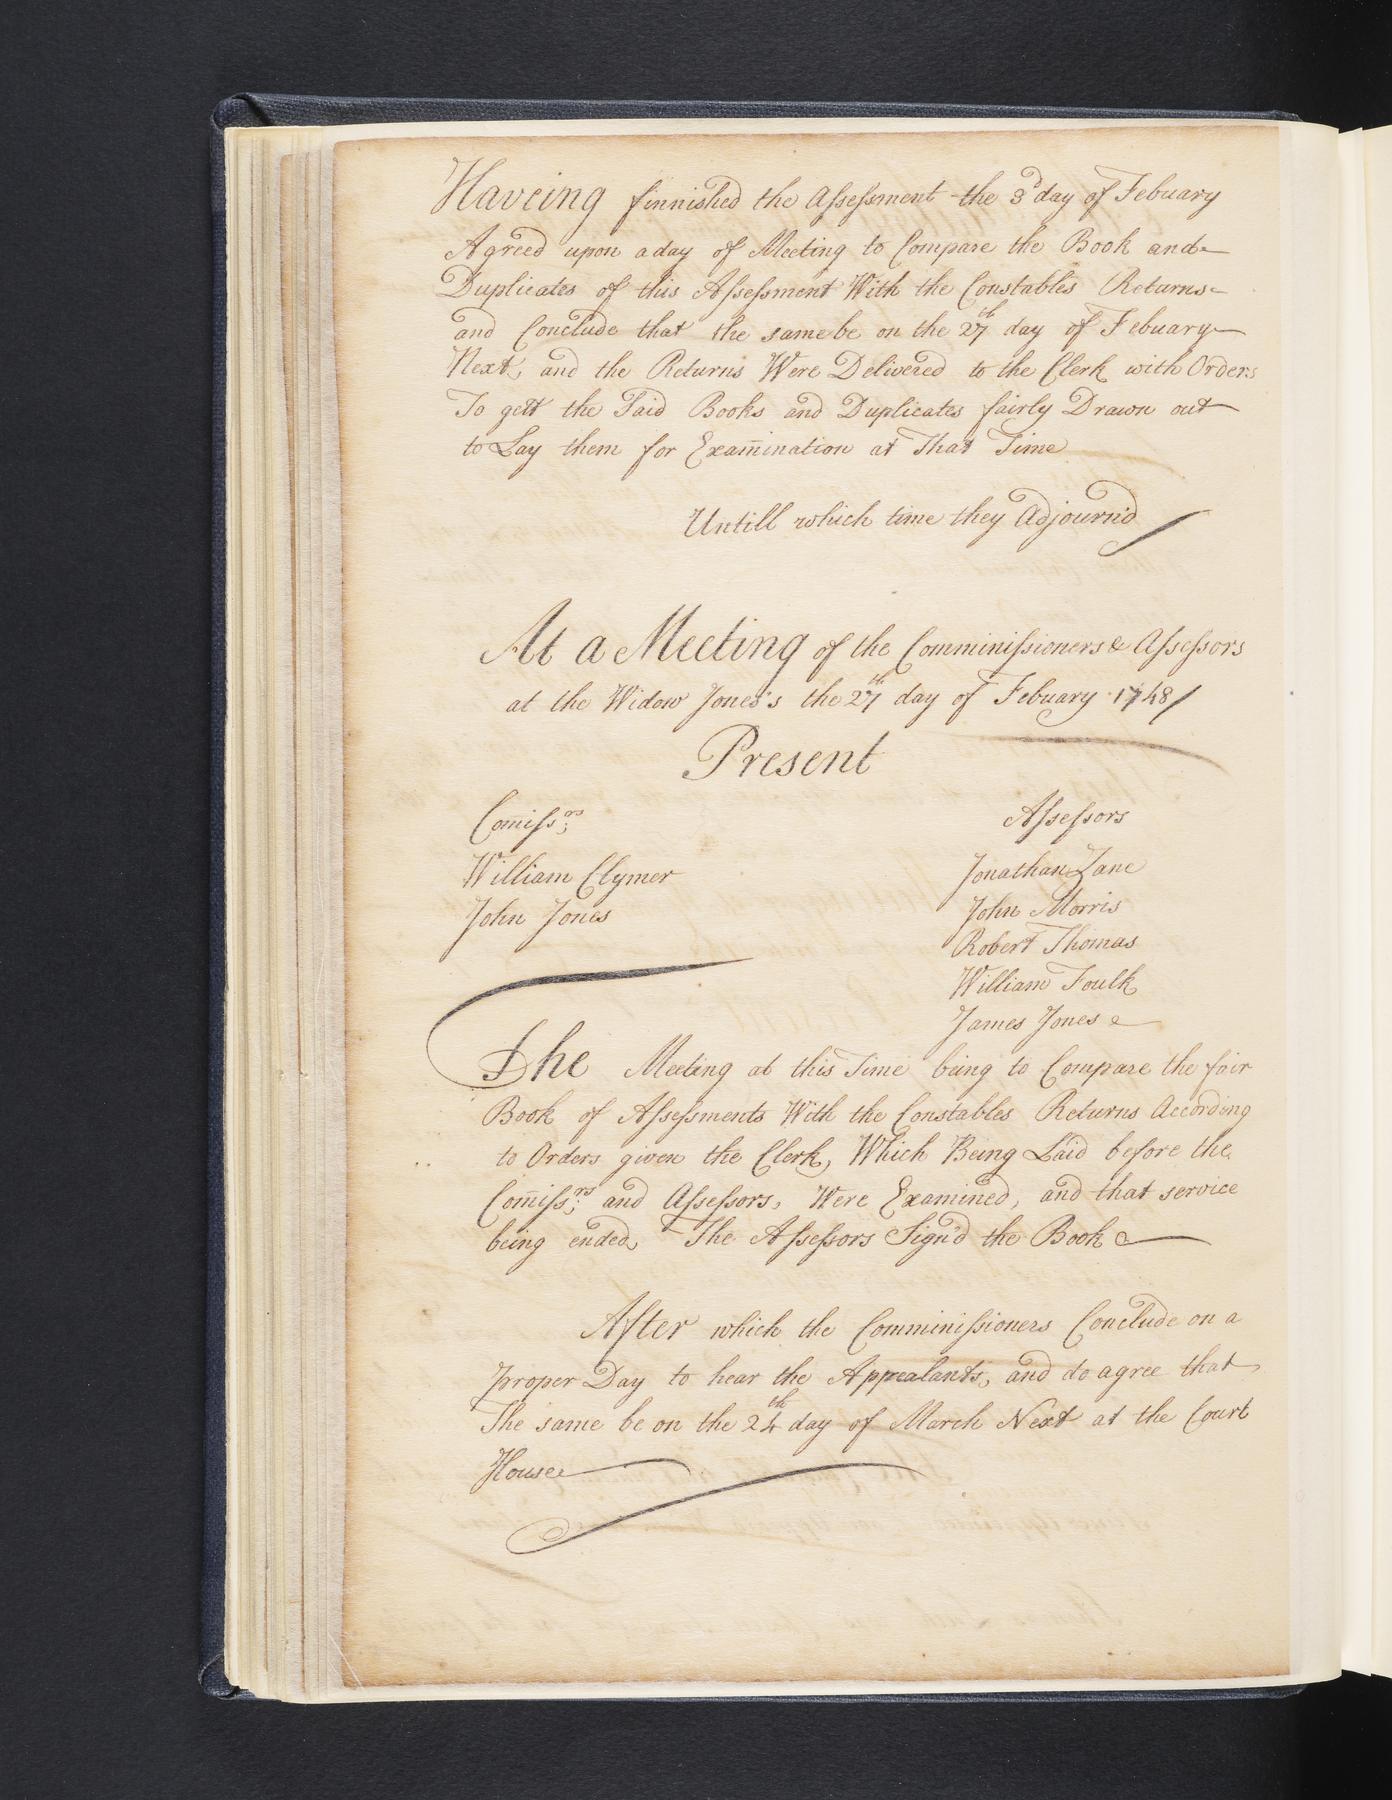 Haveing finnished the Assessment the 3d day of Febuary
Agreed upon a day of Meeting to Compare the Book and
Duplicates of this Assessment With the Constables Returns
and Conclude that the same be on the 27th day of Febuary
Next, and the Returns Were Delivered to the Clerk with Orders
To gett the Said Books and Duplicates fairly Drawn out
to Lay them for Examination at That Time
Untill which time they Adjourn'd
At a Meeting of the Comminissioners & Assessors
at the Widow Jones's the 27th day of Febuary 1748/
Present
Comissrs;
Assessors
William Clymer
Jonathan Zane
John Jones
John Morris
Robert Thomas
William Foulk
James Jones
The Meeting at this Time being to Compare the fair
Book of Assessments With the Constables Returns According
to Orders given the Clerk, Which Being Laid before the
Comissrs; and Assessors, Were Examined, and that service
being ended, The Assessors Sign'd the Book
After which the Comminissioners Conclude on a
proper Day to hear the Appealants, and do agree that
The same be on the 24th day of March Next at the Court
House